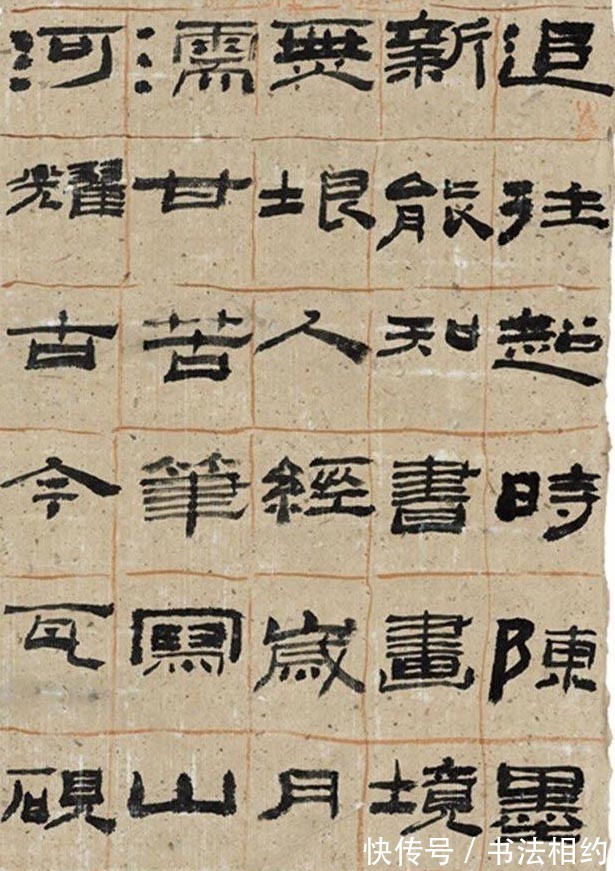 追往超時陳墨
新能知書畫境
無垠人經歲月
濡甘苦筆寫山
河耀古今瓦硯
快传号 / 书法相约